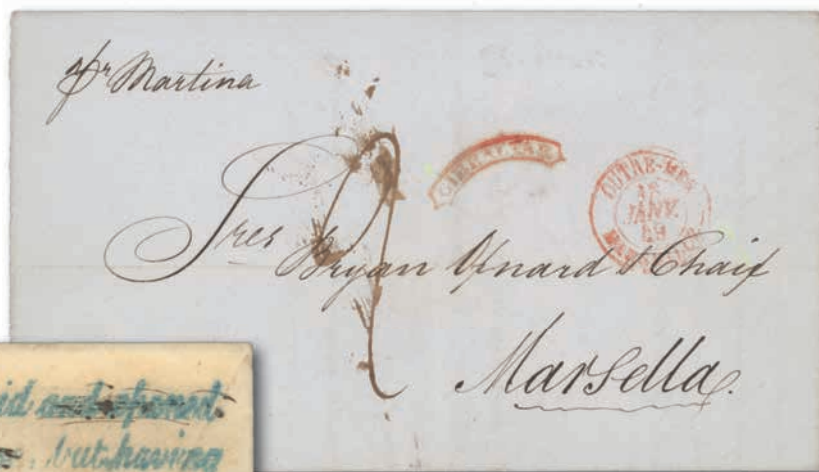 pr Martina
GIBRALTAR
OUTRE-MER
12
JANV.
59
MARSEILLE
Sres Bryan Ysnard & Chaix
Marsella.
2
id and opened
but having